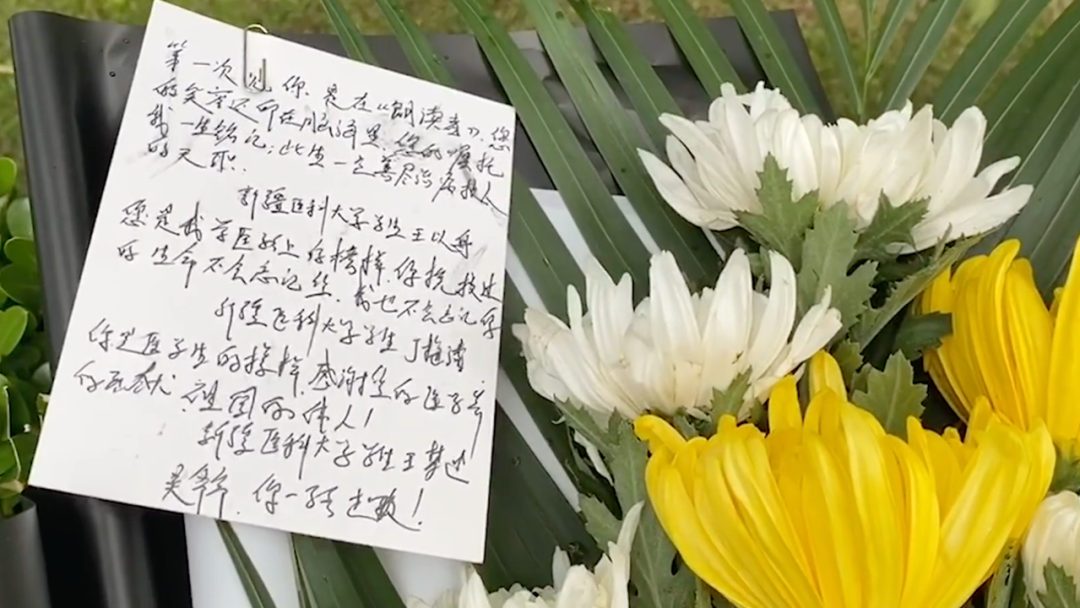 第一次见你,是在《朗读者》,您
的笑容还印在脑海里,您的嘱托
我一生铭记:此生一定善尽治病救人
的天职.
新疆医科大学学生王以新
您是我学医路上的榜样,你挽救过
的生命不会忘记您,我也不会忘记你
新疆医科大学学生
你是医学生的榜样,感谢您的医学
的贡献,祖国的伟人!
新疆医科大学学生王梦
吴爷爷,你一路走好!